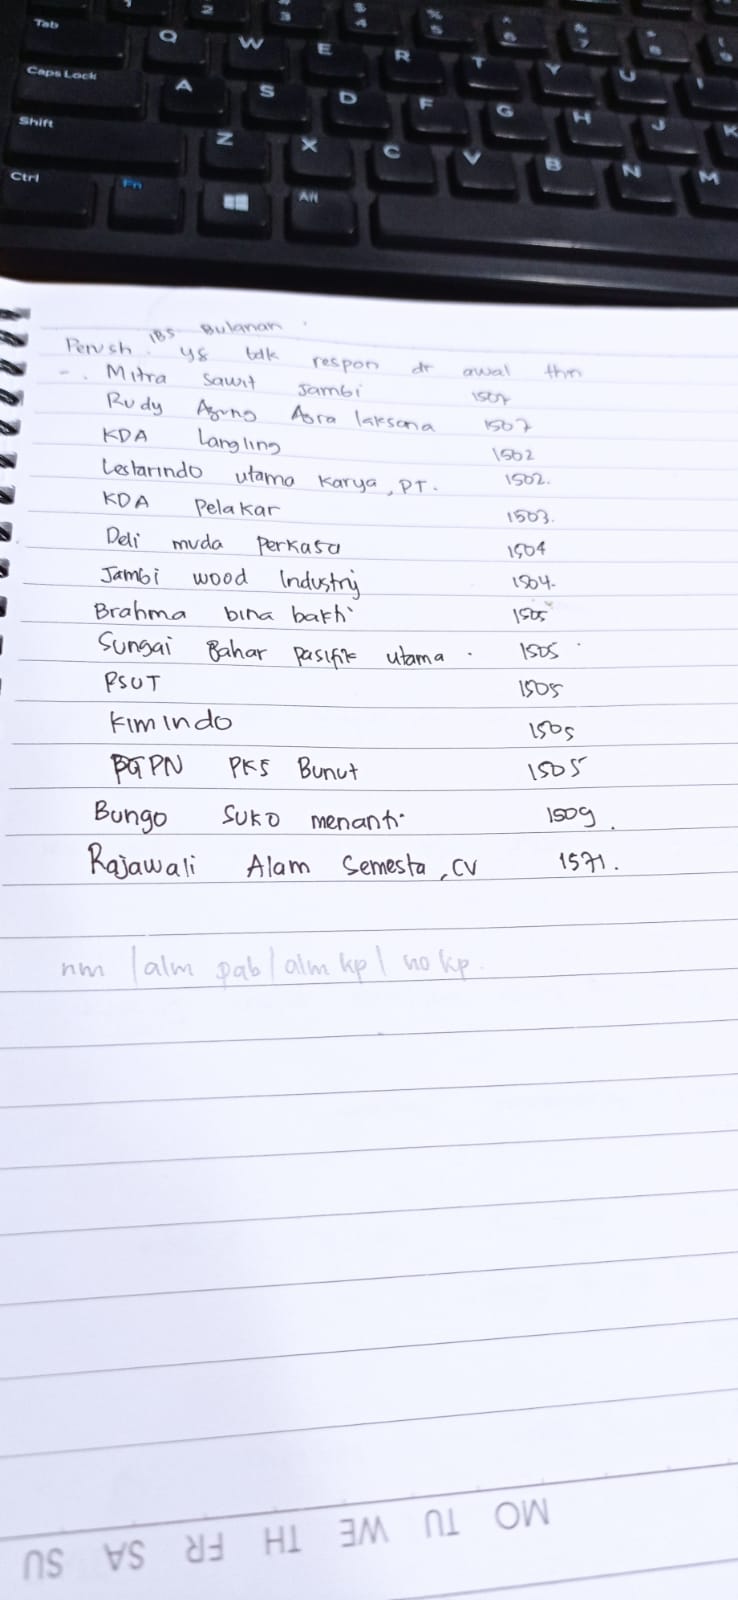 Tab
Q W E R T Y U I
Caps Lock A S D F G H J K
Shift Z X C V B N M
Ctrl Fn Alt
IBS Bulanan
Perush. yg tdk respon dr awal thn
- . Mitra Sawit Jambi 1507
Rudy Agung Agra laksana 1507
KDA Langling 1502
Lestarindo utama Karya, PT. 1502.
KDA Pelakar 1503.
Deli muda perkasa 1504
Jambi wood Industry 1504.
Brahma bina bakti 1505
Sungai Bahar pasifik utama. 1505
PSUT 1505
Kimindo 1505
PKS Bunut 1505
Bungo Suko menanti 1509.
Rajawali Alam Semesta, CV 1571.
nm | alm pab | alm kp | no kp.
MO TU WE TH FR SA SU